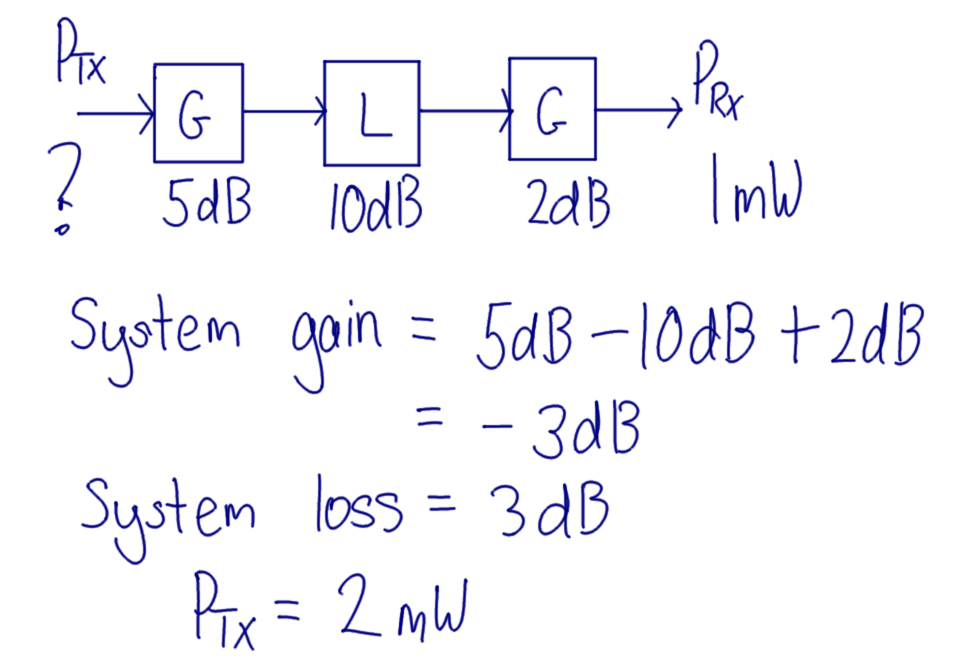 P_Tx G L G P_Rx
? 5dB 10dB 2dB 1mW
System gain = 5dB - 10dB + 2dB
= - 3dB
System loss = 3dB
P_Tx = 2mW